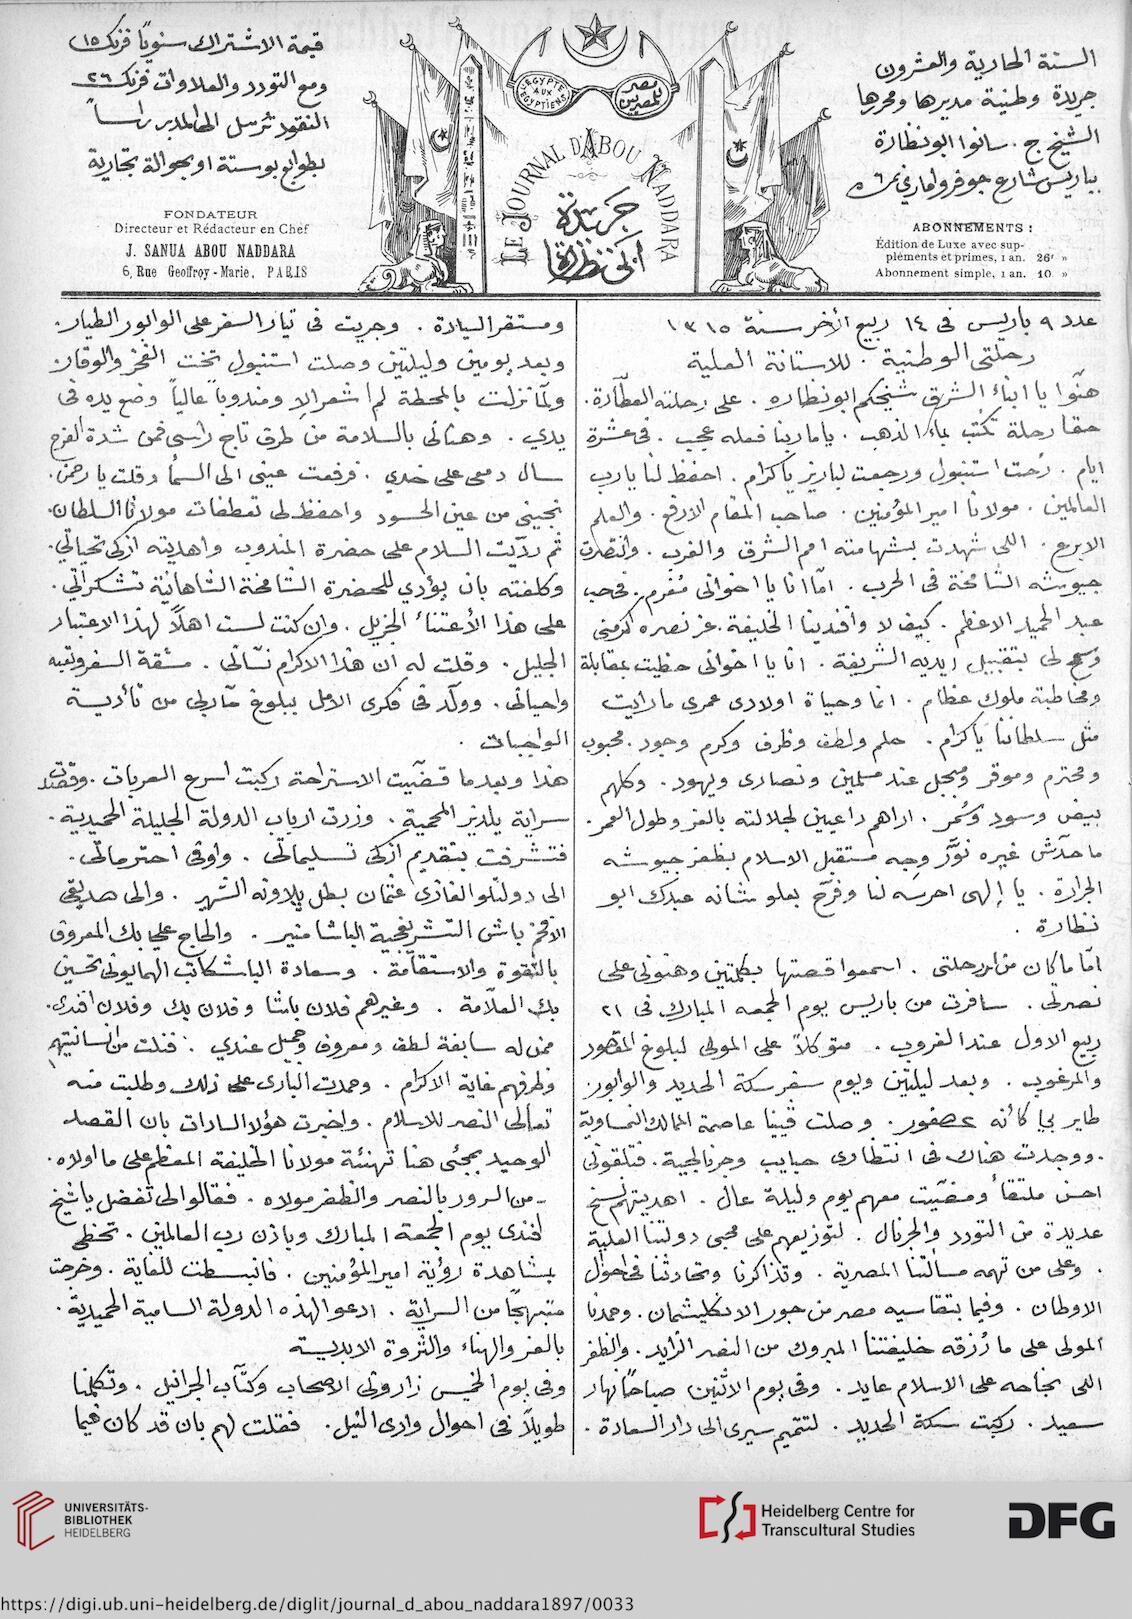 قيمة الاشتراك سنويًا فرنك ١٥
ومع التودد والعلاوات فرنك ٢٦
النقود ترسل الى المدير راساً
بطوابع بوستة او بحوالة تجارية
FONDATEUR
Directeur et Rédacteur en Chef
J. SANUA ABOU NADDARA
6, Rue Geoffroy-Marie, PARIS
EGYPTE AUX EGYPTIENS
مصر للمصريين
LE JOURNAL D'ABOU NADDARA
جريدة
ابي نظارة
السنة الحادية والعشرون
جريدة وطنية مديرها ومحررها
الشيخ ج. سانوا ابو نظارة
بباريس شارع جوفروا ماري نمرة ٦
ABONNEMENTS :
Édition de Luxe avec sup-
pléments et primes, 1 an. 26f »
Abonnement simple, 1 an. 10 »
عدد ٩ باريس فى ١٤ ربيع الأخر سنة ١٣١٥
رحلتى الوطنية . للاستانة العلية
هنّوا يا ابناء الشرق شيخكم ابو نظاره . على رحلته العطّارة .
حقا رحلة تكتب بماء الذهب . ياما رينا فعله عجيب . فى عشرة
ايام . رُحت استنبول ورجعت لباريز يا كرام . احفظ لنا يا رب
العالمين . مولانا امير المؤمنين . صاحب المقام الارفع . والعلم
الابرع . اللى شهدت بشهامته امم الشرق والغرب . وانتصرت
جيوشه الشامخة فى الحرب . امّا انا يا اخوانى مُغرم . فى حب
عبد الحميد الاعظم . كيف لا وافندينا الخليفة . عز نصره اكرمنى
وسمح لى بتقبيل ايديه الشريفة . انا يا اخوانى حظيت بمقابلة
ومخاطبة ملوك عظام . انما وحياة اولادى عمرى ما رايت
مثل سلطاننا يا كرام . حلم ولطف وظرف وكرم وجود . محبوب
ومحترم وموقر ومبجل عند مسلمين ونصارى ويهود . وكلهم
بيض وسود وسُمر . اراهم داعيين لجلالته بالعز وطول العمر .
ما حدّش غيره نوّر وجه مستقبل الاسلام بظفر جيوشه
الجرارة . يا إلهى احرسه لنا وفرّح بعلو شانه عبدك ابو
نظارة .
امّا ما كان من امر رحلتى . اسمعوا قصتها بكلمتين وهنونى على
نصرتى . سافرت من باريس يوم الجمعه المبارك فى ٢١
ربيع الاول عند الغروب . متوكلاً على المولى لبلوغ المقصود
والمرغوب . وبعد ليلتين ويوم سفر سكة الحديد والوابور
طاير بي كأنه عصفور . وصلت ڤيينا عاصمة الممالك النمساوية
. ووجدت هناك فى انتظارى حبايب وجرنالجية . فتلقونى
احسن ملتقاً ومضيّت معهم يوم وليلة عال . اهديتهم نسخ
عديدة من التودد والجرنال . لتوزيعهم على محبى دولتنا العلية
. وعلى من تهمه مسالتنا المصرية . وتذاكرنا وتحادثنا فى احوال
الاوطان . وفيما بتقاسيه مصر من جور الانكليشمان . وحمدنا
المولى على ما رُزقه خليفتنا المبروك من النصر الزايد . والظفر
اللى نجاحه على الاسلام عايد . وفى يوم الاثنين صباحًا نهار
سعيد . ركبت سكة الحديد . لتتميم سيرى الى دار السعادة .
ومستقر السيادة . وجريت فى تيار السفر على الوابور الطيار .
وبعد يومين وليلتين وصلت استنبول تخت الفخر والوقار .
ولمّا نزلت بالمحطة لم اشعر الا ومندوبًا عالياً وضع يده فى
يدي . وهنانى بالسلامة من طرف تاج راسى فمن شدة الفرح
سال دمعى على خدي . فرفعت عينى الى السما وقلت يا رحمن .
نجينى من عين الحسود واحفظ لى تعطفات مولانا السلطان .
ثم ردّيت السلام على حضرة المندوب واهديته ازكى تحياتي .
وكلفته بان يؤدي للحضرة الشامخة الشاهانية تشكراتي .
على هذا الأعتناء الجزيل . وان كنت لست اهلاً لهذا الاعتبار
الجليل . وقلت له ان هذا الاكرام نسّانى . مشقة السفر وتعبه
واحيانى . وولّد فى فكرى الامل ببلوغ مآربى من تأدية
الواجبات .
هذا وبعد ما قضّيت الاستراحة ركبت اسرع العربات . وقصدت
سراية يلديز المحمية . وزرت ارباب الدولة الجليلة الحميدية .
فتشرفت بتقديم أزكى تسليماتى . واوفى احتراماتى .
الى دولتلو الغازى عثمان بطل پلاونه الشهير . والى صديقى
الافخم باش التشريفجية الباشا منير . والحاج على بك المعروف
بالتقوة والاستقامة . وسعادة الباشكاتب الهمايونى تحسين
بك العلّامة . وغيرهم فلان باشا وفلان بك وفلان افندى .
ممن له سابقة لطف ومعروف وجميل عندي . فنلت من انسانيتهم
وظرفهم غاية الاكرام . وحمدت البارى على ذلك وطلبت منه
تعالى النصر للاسلام . واخبرت هؤلا السادات بان القصد
الوحيد بمجئى هنا تهنئة مولانا الخليفة المعظم على ما اولاه .
من السرور بالنصر والظفر مولاه . فقالوا لى تفضل يا شيخ
لغندى يوم الجمعة المبارك وباذن رب العالمين . تحظى
بمشاهدة رؤية امير المؤمنين . فانبسطت للغاية . وخرجت
مبتهجًا من السراية . ادعو لهذه الدولة السامية الحميدية .
بالعز والهناء والثروة الابدية
وفى يوم الخميس زارونى الاصحاب وكتّاب الجرانيل . وتكلمنا
طويلاً فى احوال وادى النيل . فقلت لهم بان قد كان فيما
UNIVERSITÄTS-
BIBLIOTHEK
HEIDELBERG
Heidelberg Centre for
Transcultural Studies
DFG
https://digi.ub.uni-heidelberg.de/diglit/journal_d_abou_naddara1897/0033